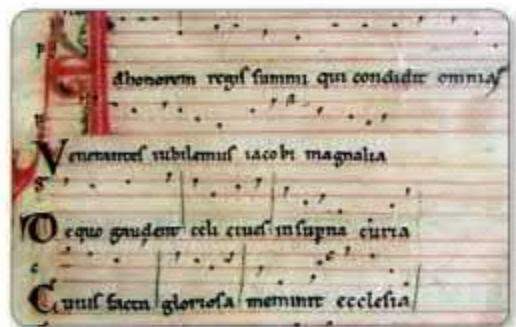 Ad honorem regis summi qui condidit omnia
Venerantes iubilemus iacobi magnalia
De quo gaudent celi ciues in supna curia
Cuius facta gloriosa meminit ecclesia